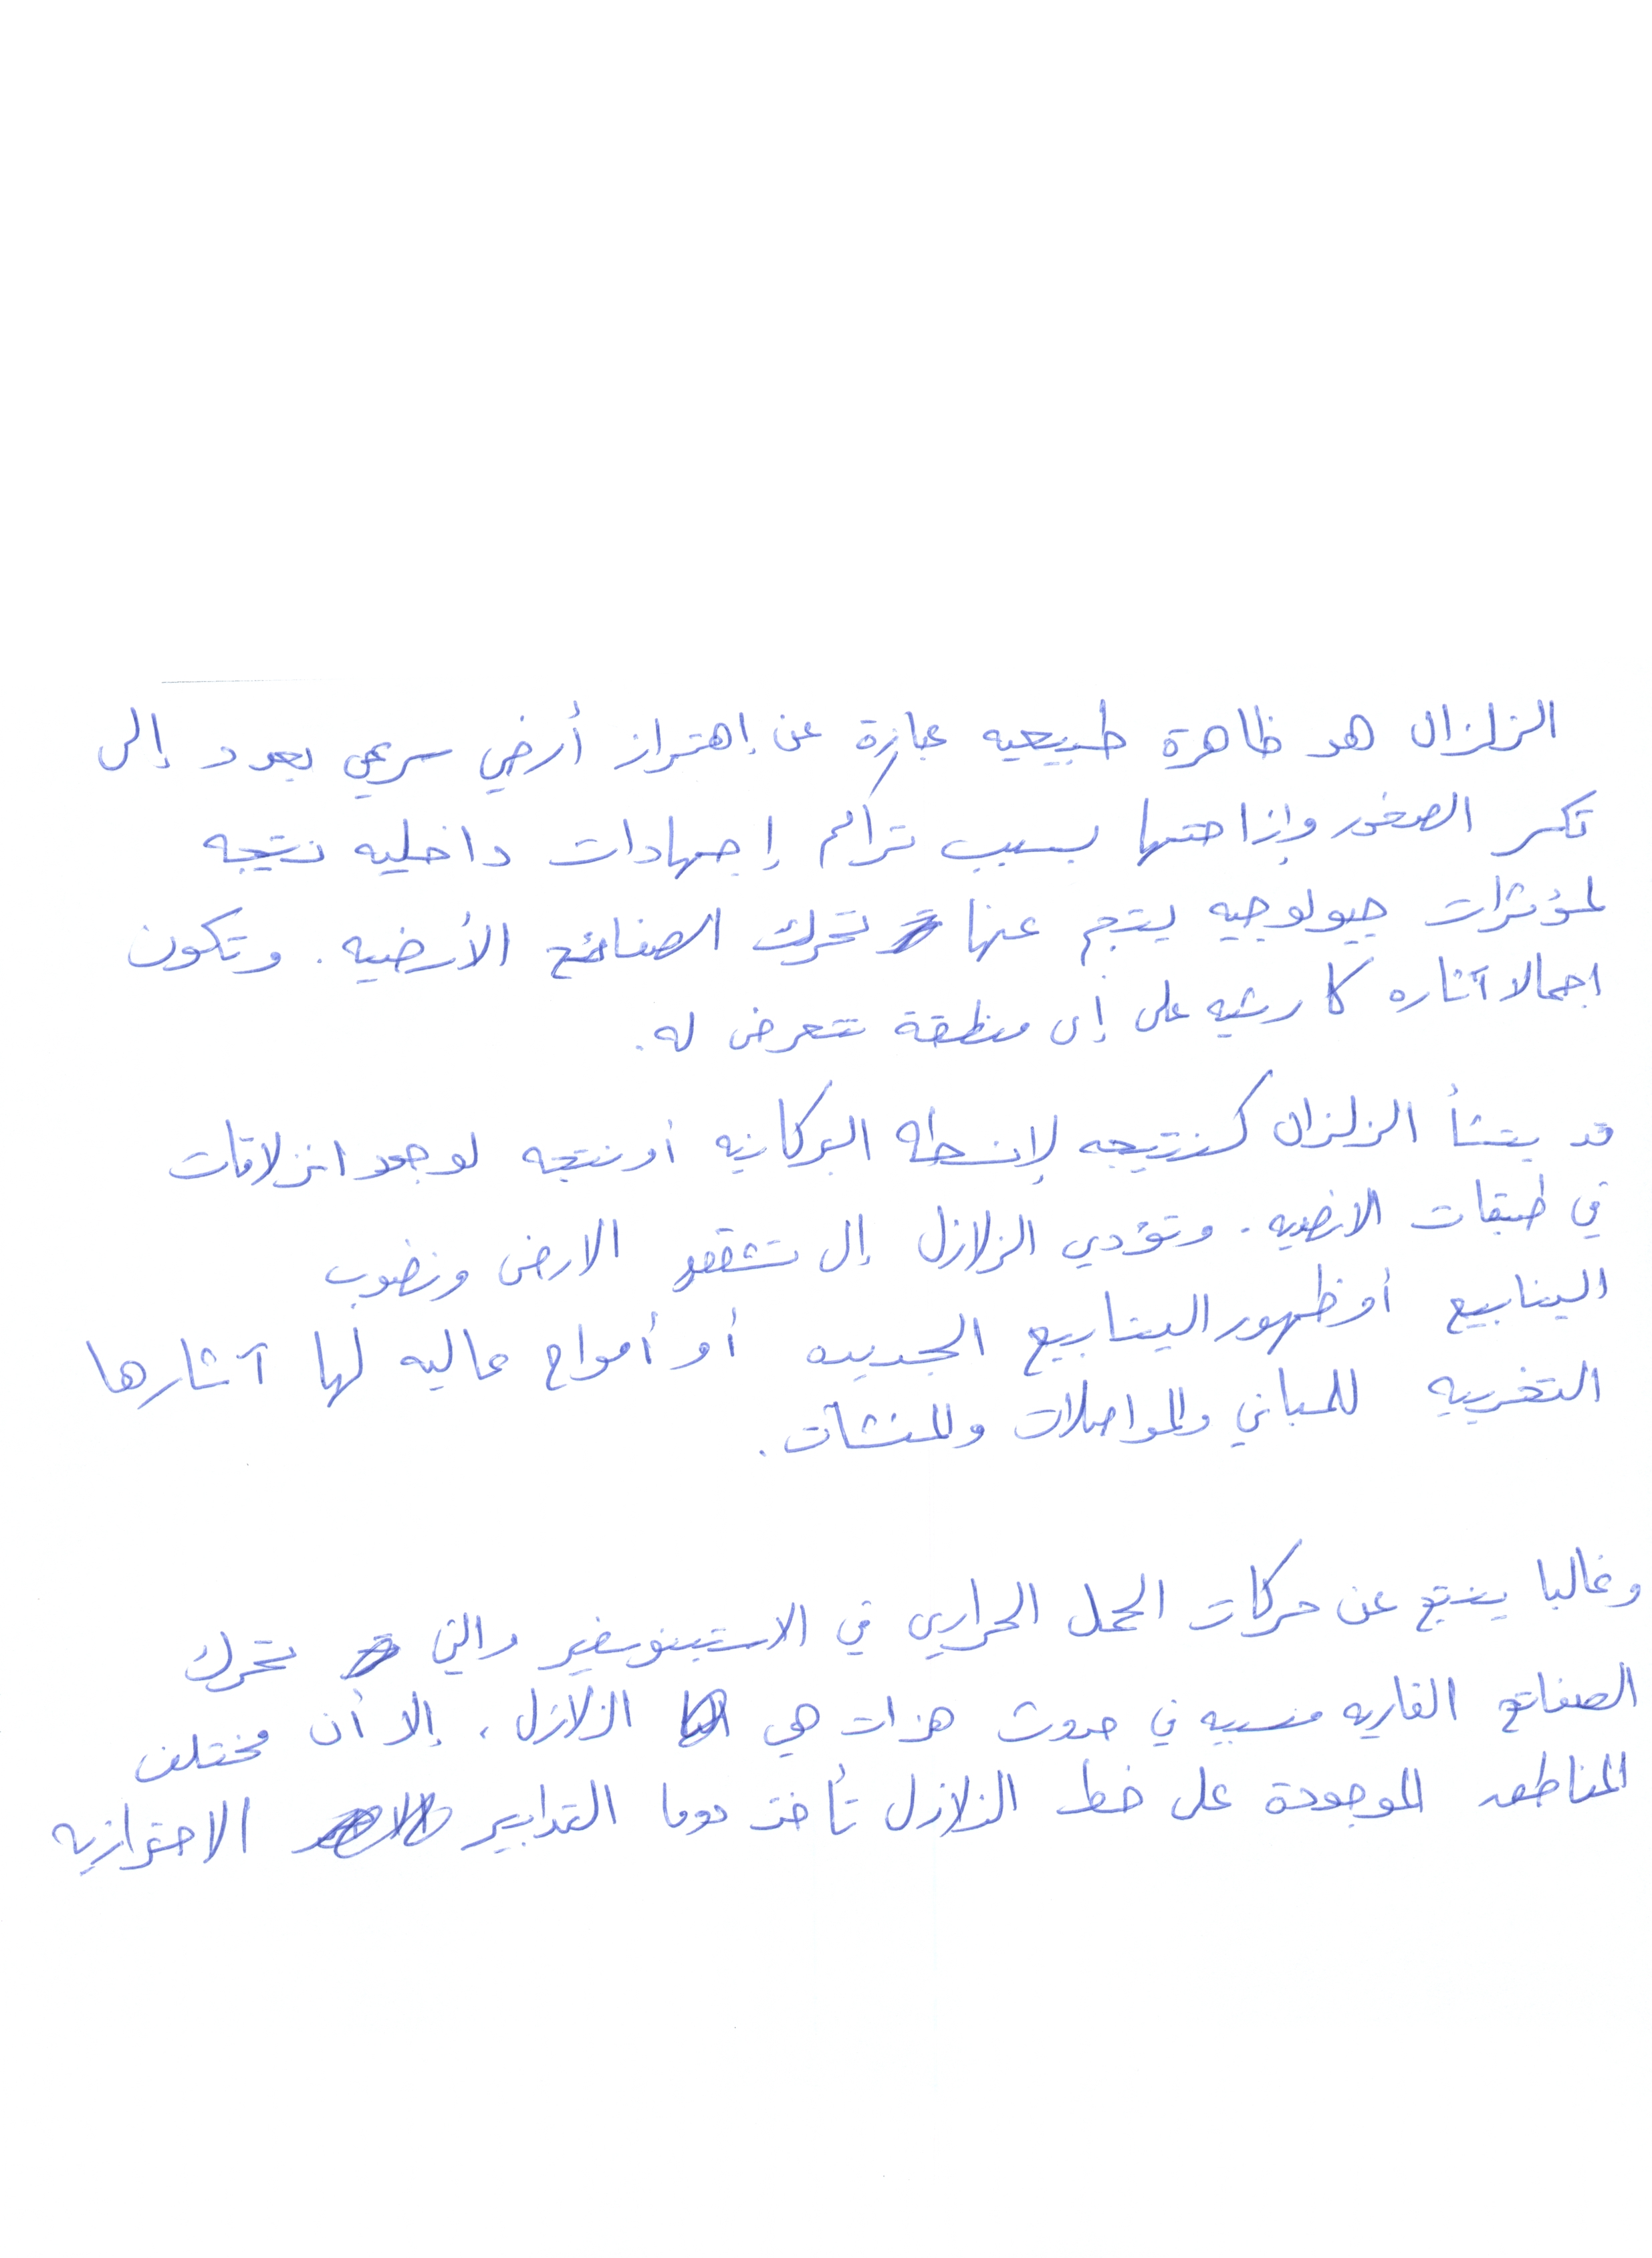 الزلزال هو ظاهرة طبيعيه عبارة عن إهتزاز أرضي سريع يعود إلى
تكسر الصخور وإزاحتها بسبب تراكم إجهادات داخليه نتيجه
لمؤثرات جيولوجيه ينجم عنها تحرك الصفائح الأرضيه. وتكون
اجمالا آثاره كارثيه على إى منطقة تتعرض له.
قد ينشأ الزلزال كنتيجه لإنشطه البركانيه أو نتيجه لوجود انزلاقات
في طبقات الارضيه. وتؤدي الزلازل إلى تشقق الارض ونضوب
الينابيع أو ظهور الينابيع الجديده أو أمواج عاليه لها آثارها
التخريبيه للمباني والمواصلات والمنشآت.
وغالبا ينتج عن حركات الحمل الحراري في الاستينوسفير والتي تحرك
الصفائح القاريه مسببه في حدوث هزات هي الزلازل، إلا أن مختلف
المناطق الموجودة على خط الزلازل تأخذ دوما التدابير الاحترازيه